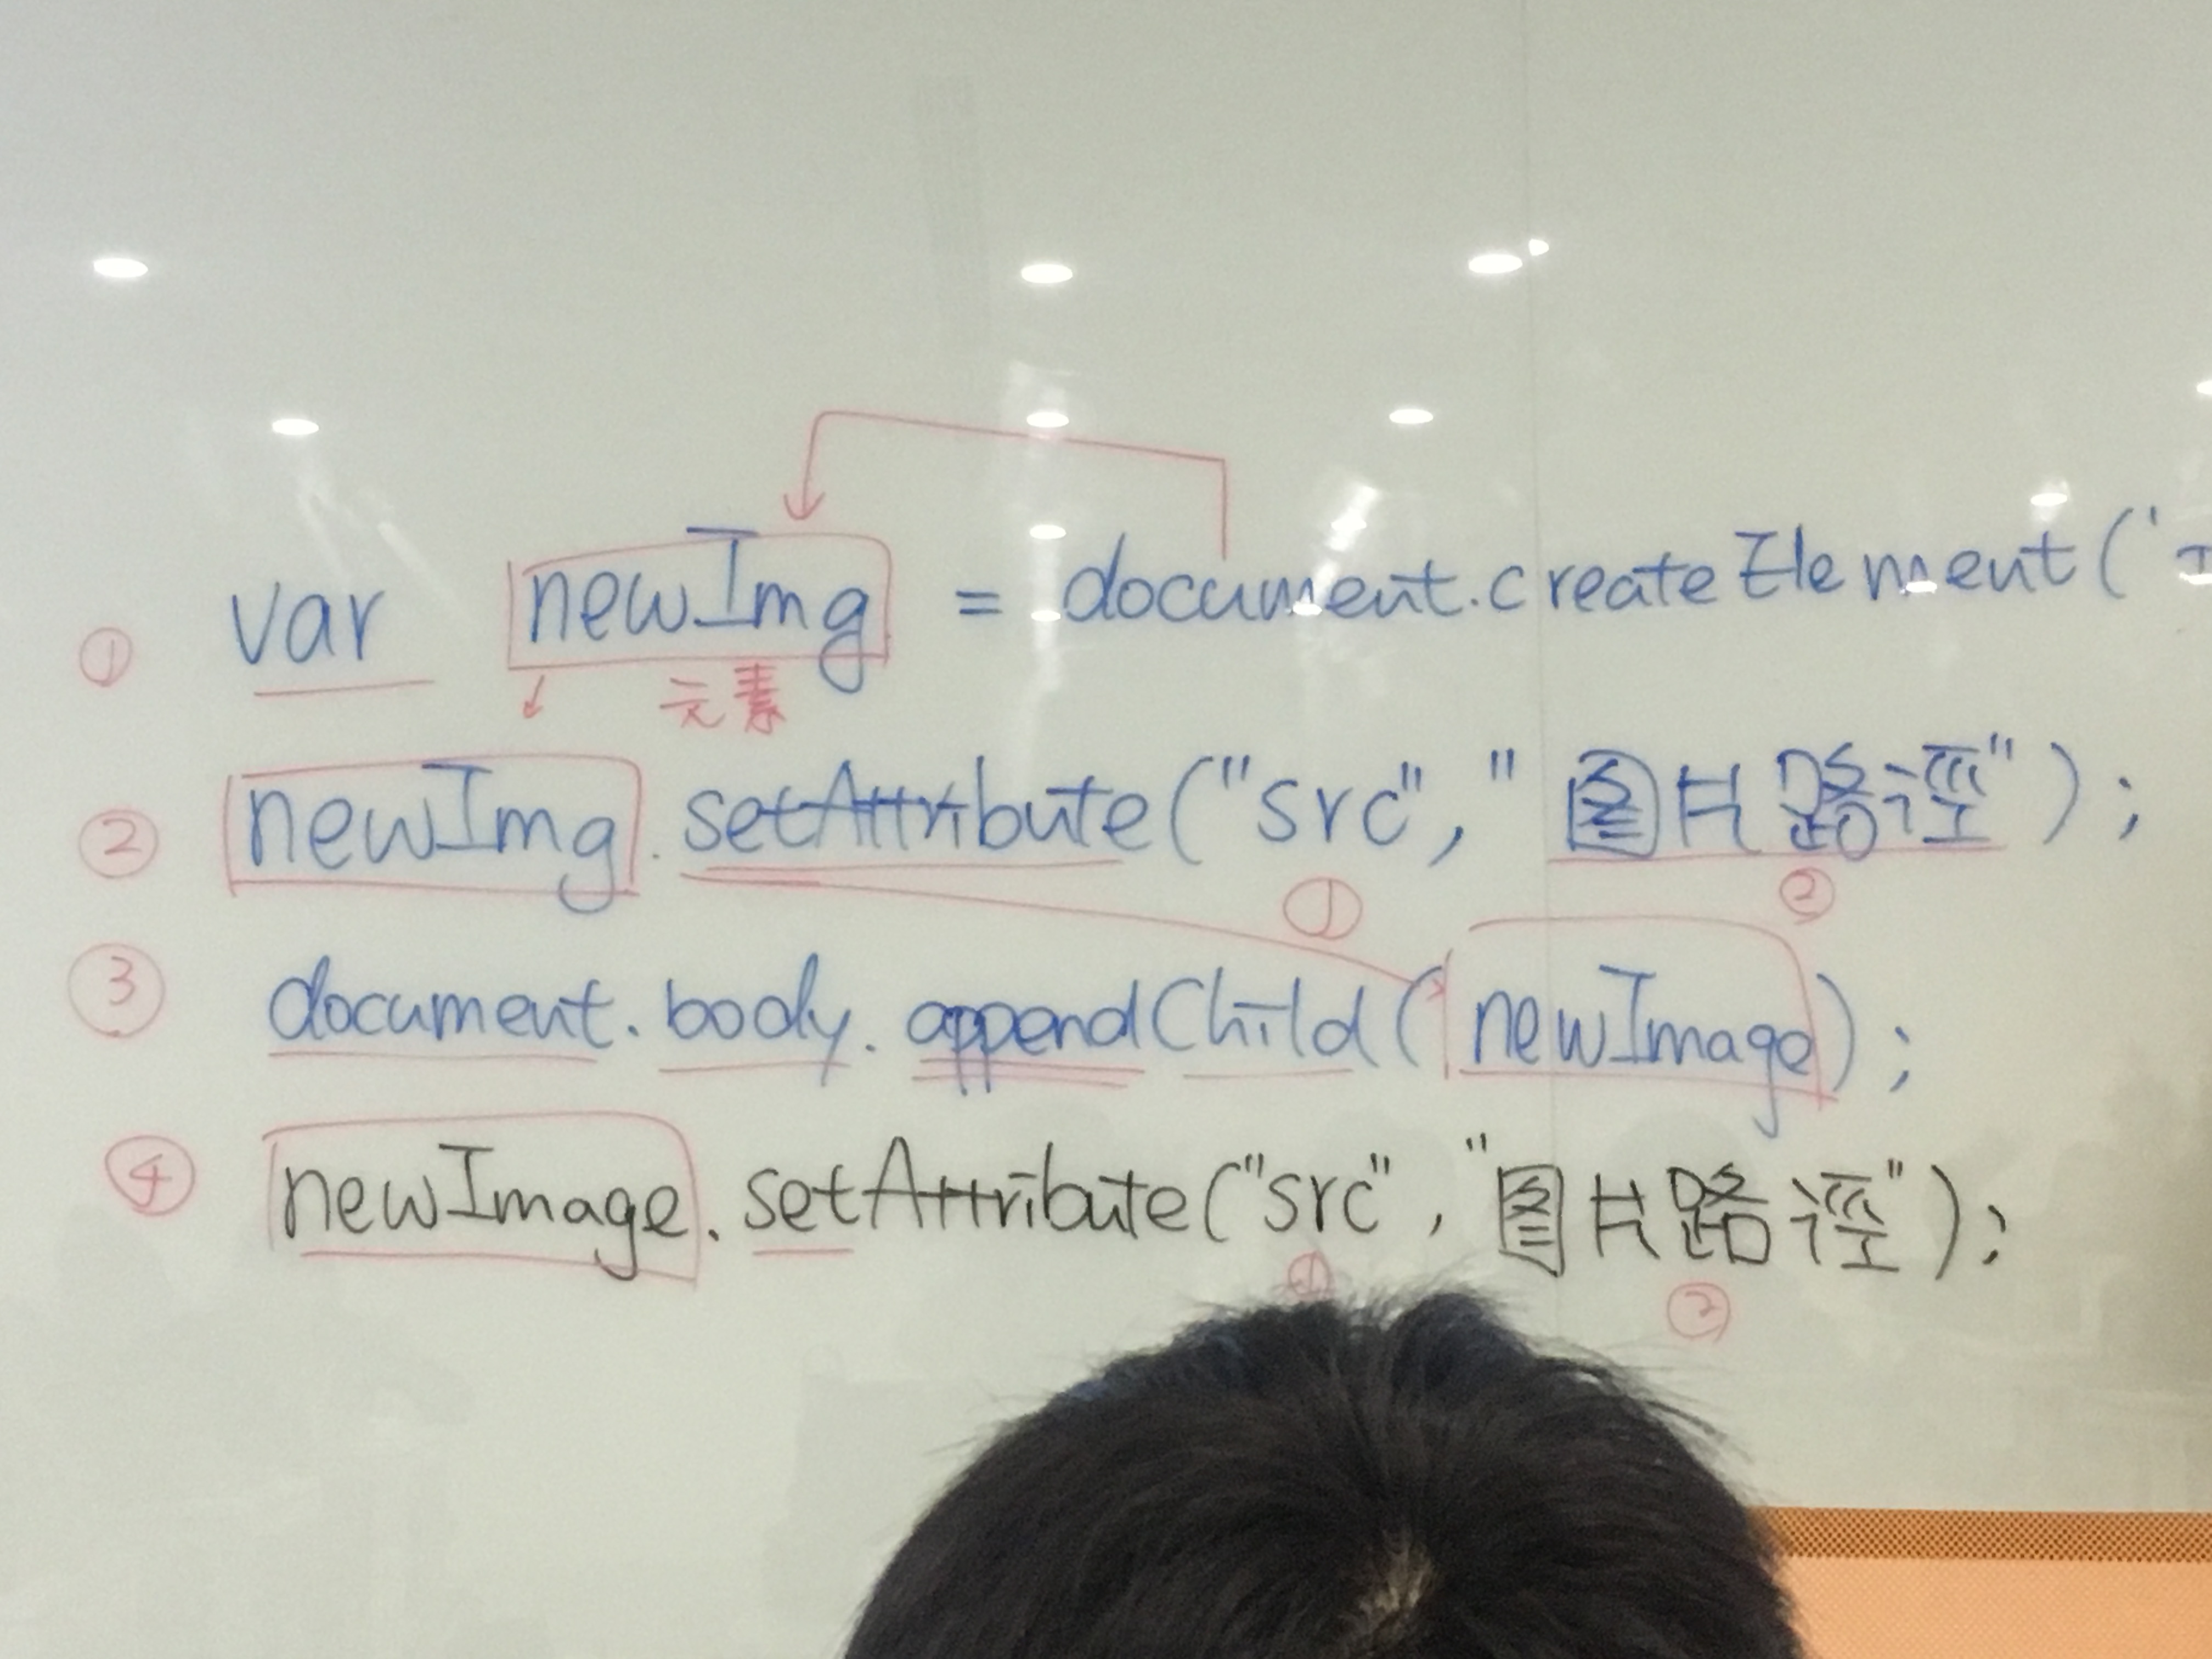 ① var newImg = document.createElement('I
元素
② newImg.setAttribute("src", "图片路径");
① ②
③ document.body.appendChild(newImage);
④ newImage.setAttribute("src", "图片路径");
① ②